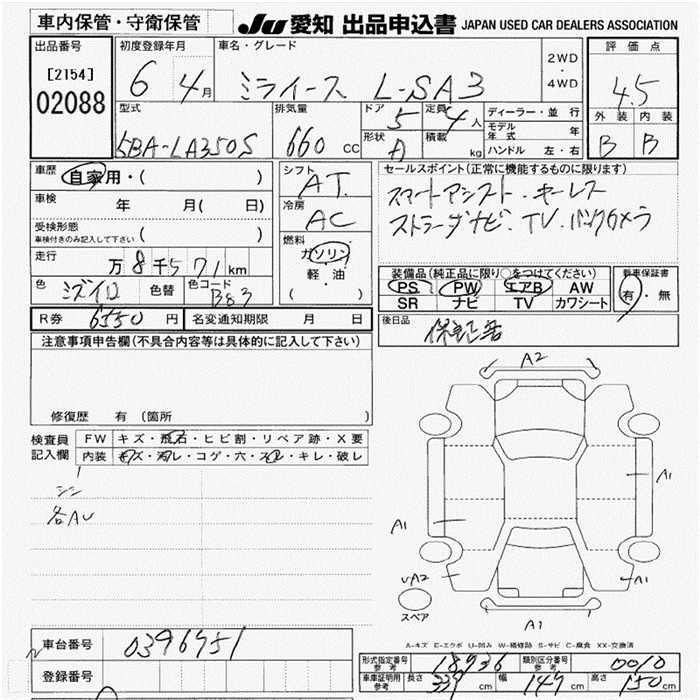 車内保管・守衛保管
JU 愛知 出品申込書 JAPAN USED CAR DEALERS ASSOCIATION
出品番号 [2154] 02088
初度登録年月 6 4月
車名・グレード ミライース L-SA3
2WD・4WD
評価点 4.5
外装 B 内装 B
型式 5BA-LA350S
排気量 660 cc
ドア 5 形状
定員 4人 積載 kg
ディーラー・並行
モデル年式 年
ハンドル 左・右
車歴 自家用・( )
車検 年 月( 日)
受検形態 車検付きのみ記入して下さい ( )
走行 万8千571km
色 ミズイロ 色替 色コード B83
シフト AT
冷房 AC
燃料 ガソリン 軽・油 ( )
セールスポイント(正常に機能するものに限ります)
スマートアシスト・キーレス
ストラーダナビ・TV・バックカメラ
装備品(純正品に限り○をつけてください)
PS PW エアB AW
SR ナビ TV カワシート
新車保証書 有・無
R券 6550円 名変通知期限 月 日
後日品 保証書
注意事項申告欄(不具合内容等は具体的に記入して下さい)
修復歴 有(箇所 )
検査員記入欄
FW キズ・飛石・ヒビ割・リペア跡・X要
内装 キズ・汚レ・コゲ・穴・スレ・キレ・破レ
各AU
A2
A1
A1
A2
A1
A1
スペア
A-キズ E-エクボ U-凹み W-補修跡 S-サビ C-腐食 XX-交換済
車台番号 0396951
登録番号
形式指定番号 参考 18936 類別区分番号 参考 0010
車庫証明用 参考 長さ 339cm 幅 147cm 高さ 150cm